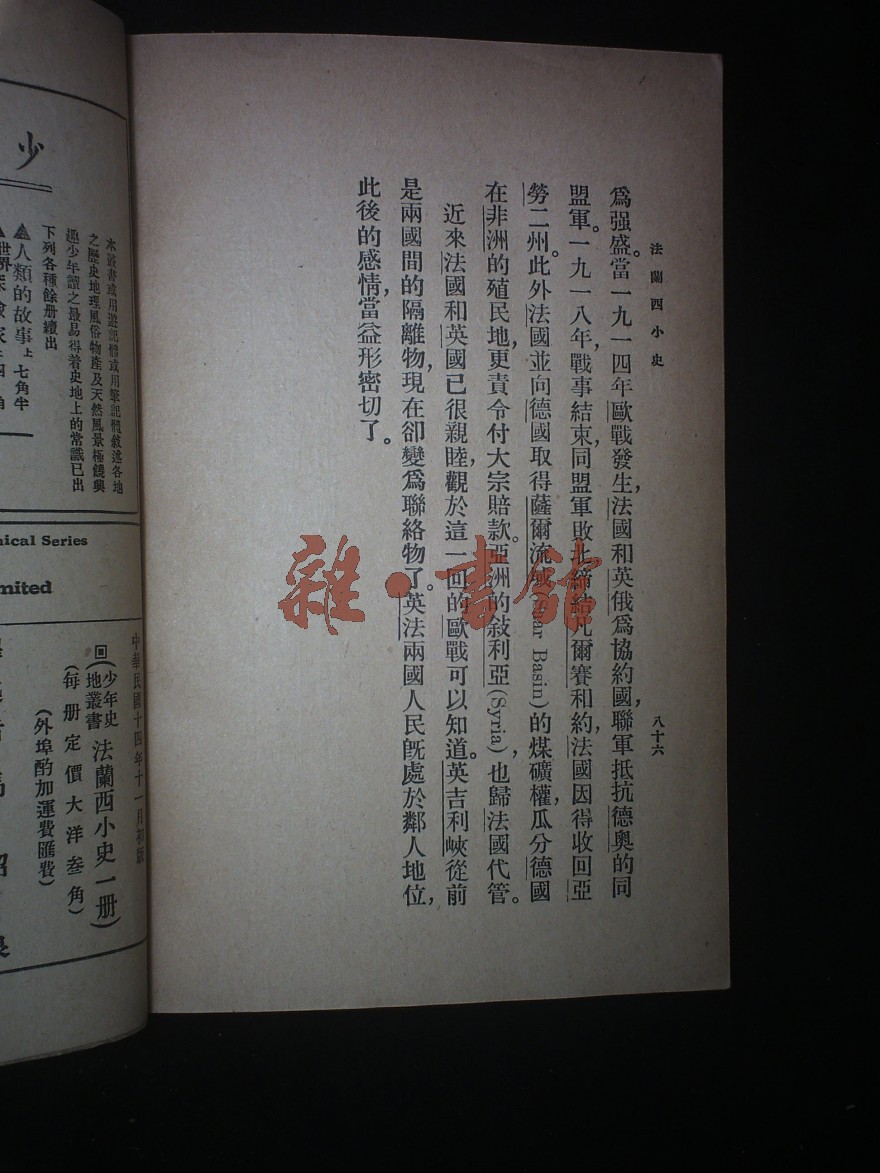 法蘭西小史
八十六
爲强盛。當一九一四年歐戰發生,法國和英俄爲協約國,聯軍抵抗德奥的同
盟軍。一九一八年,戰事結束,同盟軍敗北,締結凡爾賽和約,法國因得收回亞
勞二州。此外法國並向德國取得薩爾流域(Saar Basin)的煤礦權,瓜分德國
在非洲的殖民地,更責令付大宗賠款。亞洲的敍利亞(Syria),也歸法國代管。
近來法國和英國已很親睦,觀於這一回的歐戰可以知道。英吉利峽從前
是兩國間的隔離物,現在卻變爲聯絡物了。英法兩國人民旣處於鄰人地位,
此後的感情,當益形密切了。
雜·書館
少
本叢書或用遊記體或用筆記體敘述各地
之歷史地理風俗物產及天然風景極饒興
趣少年讀之最易得着史地上的常識已出
下列各種餘册續出
人類的故事 上 七角半
nical Series
mited
中華民國十四年十一月初版
(少年史地叢書)法蘭西小史一册
(每册定價大洋叁角)
(外埠酌加運費匯費)